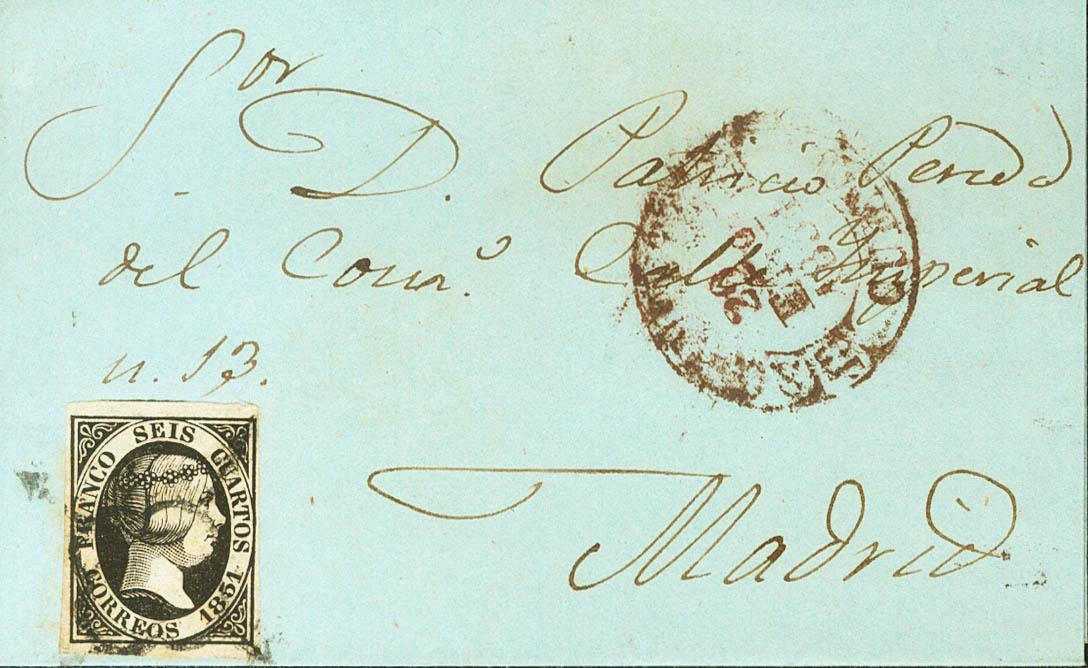 Sor D. Patricio Pereda
del Comº. Calle Ymperial
n. 13.
Madrid
FRANCO SEIS CUARTOS
CORREOS 1851